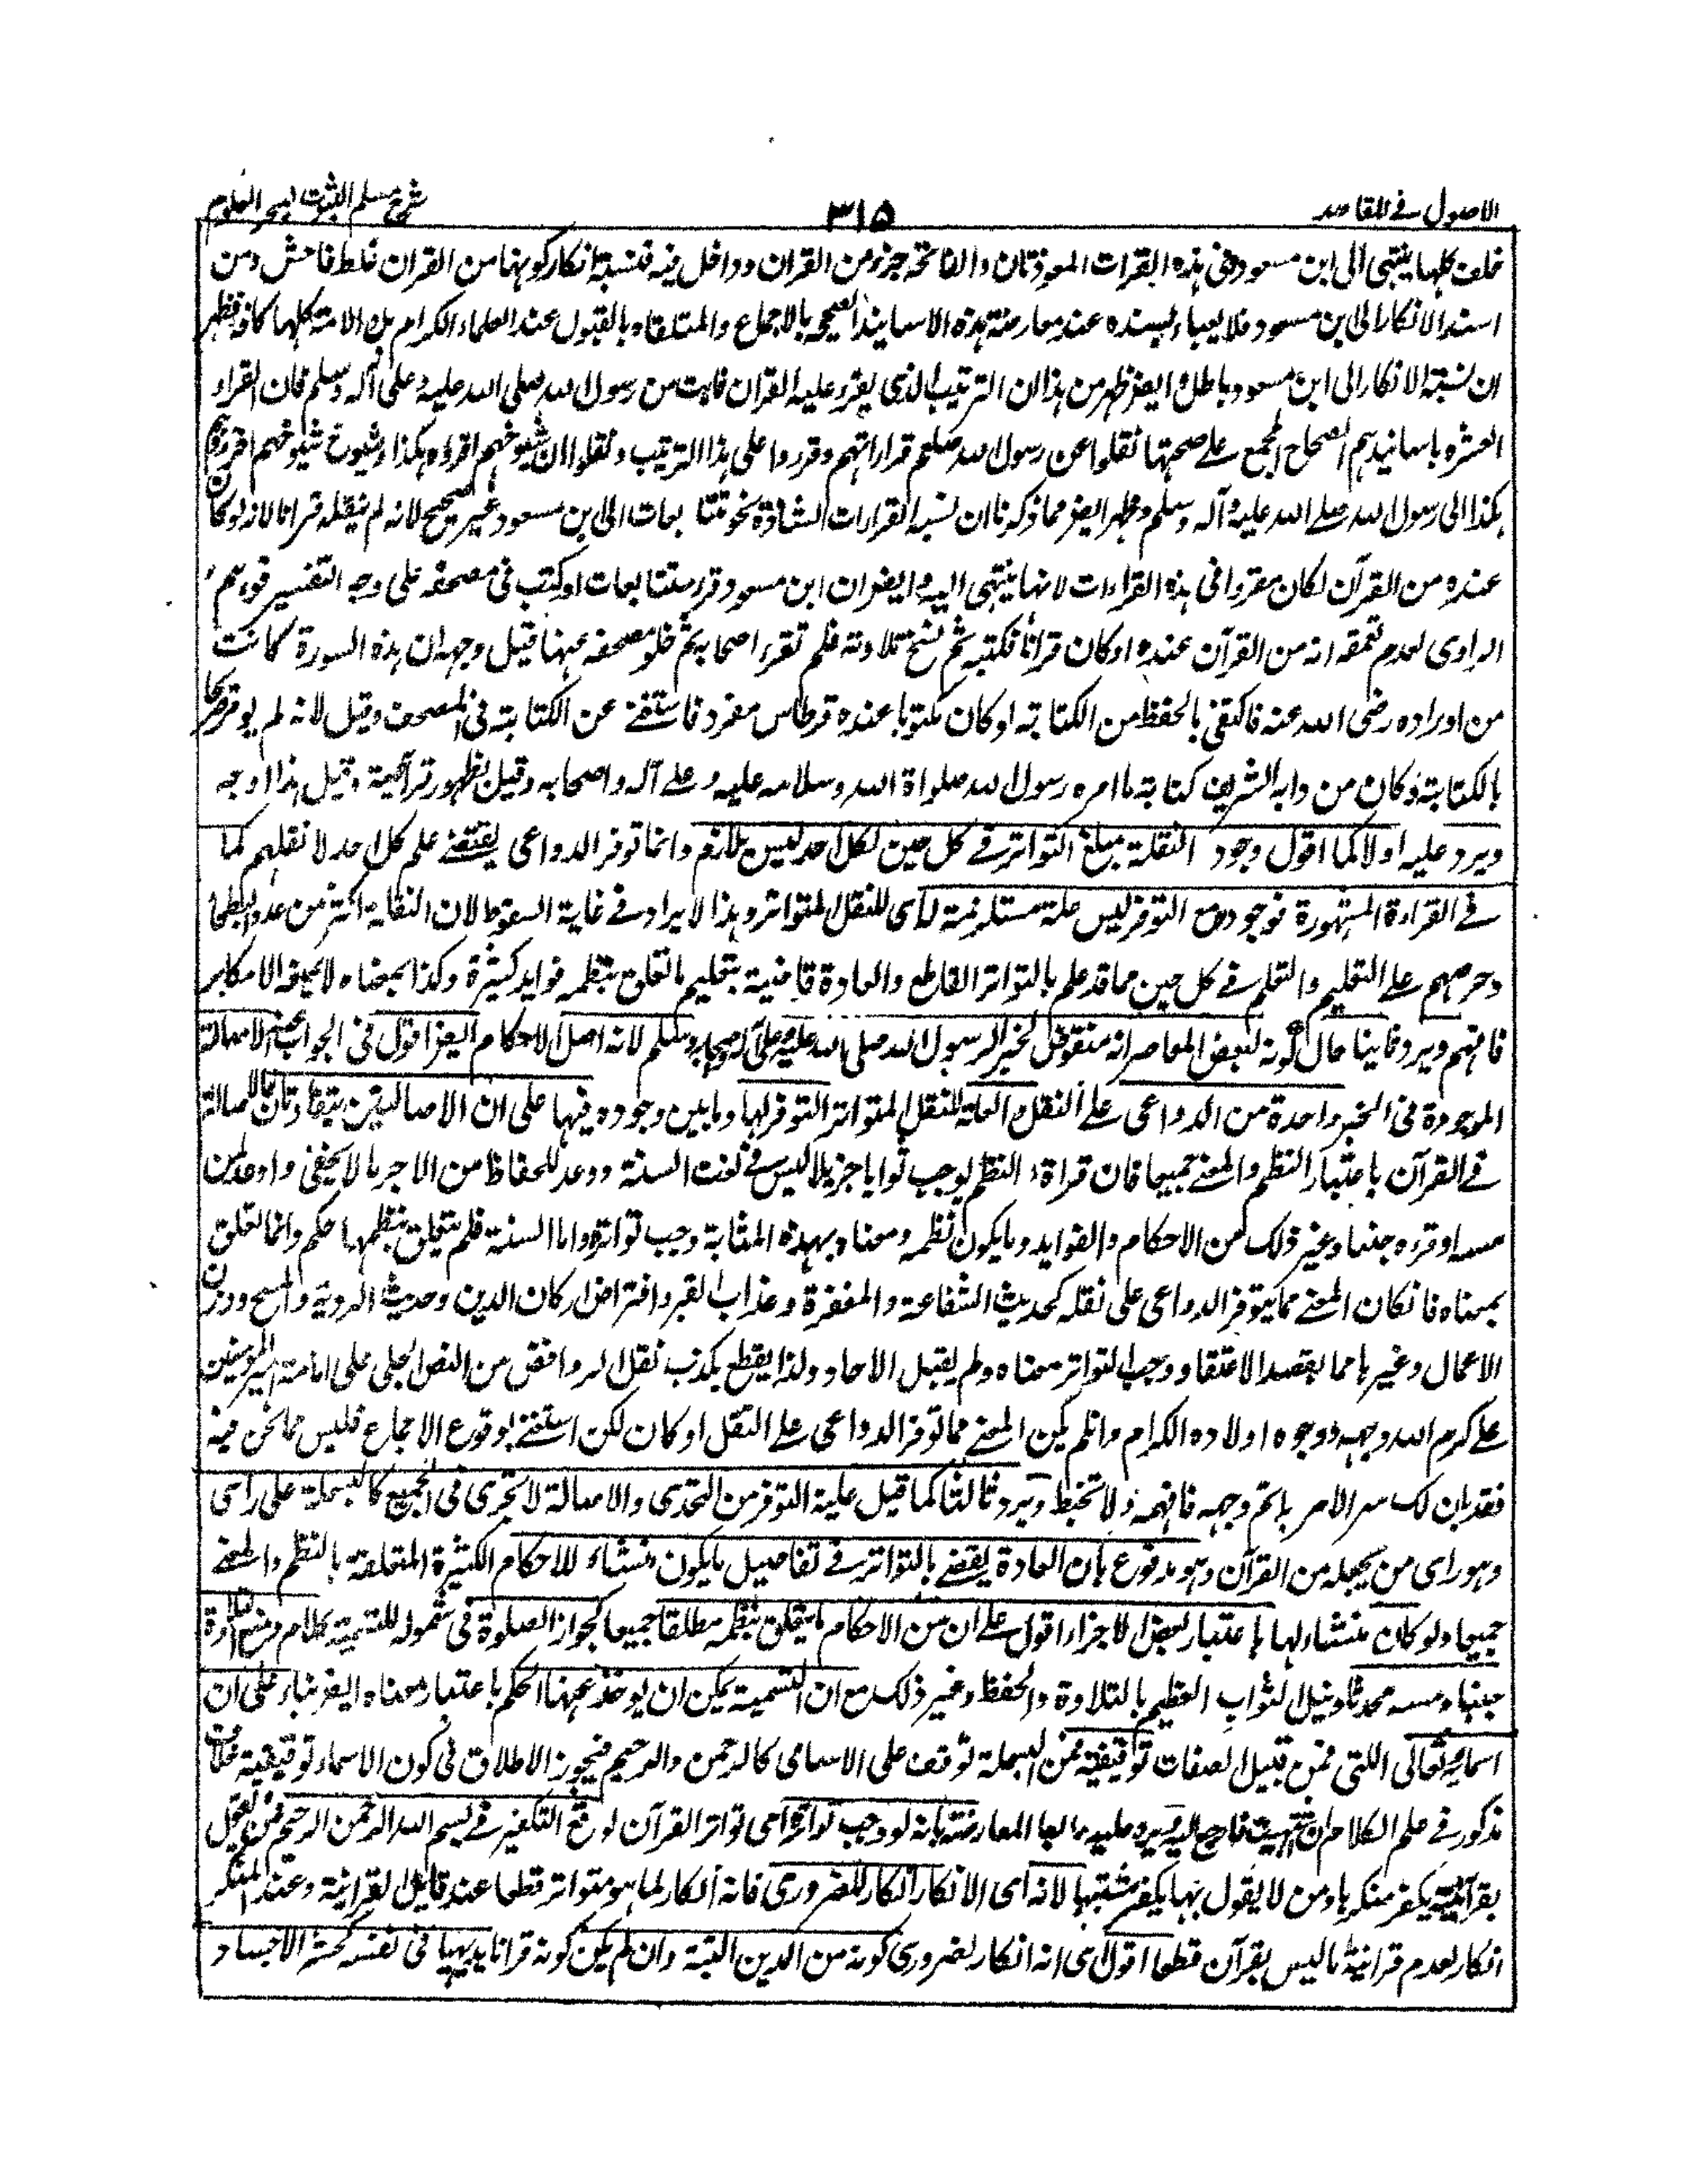 الاصول فے المقاصد
٣١٥
شرح مسلم الثبوت لبحر العلوم
خلف كلها ينتهى الى ابن مسعود وفى هذه القرات المعوذتان والفاتحة جزء من القران وداخل فيه فنسبة انكار كونها من القران غلط فاحش ومن
اسند الانكار الى ابن مسعود فلا يعباء بسنده عند معارضة هذه الاسانيد الصحيحة بالاجماع والمتلقاة بالقبول عند العلماء الكرام بل الامة كلها كافة فظهر
ان نسبة الانكار الى ابن مسعود باطل وايضا ظهر من هذا ان الترتيب الذى يقرء عليه القران ثابت من رسول الله صلى الله عليه وعلى آله وسلم فان القراء
العشرة باسانيدهم الصحاح المجمع على صحتها نقلوا عن رسول الله صلعم قراراتهم وقرءوا على هذا الترتيب ونقلوا ان شيوخهم اقروه هكذا وشيوخ شيوخهم اقروهم
هكذا الى رسول الله صلے الله عليه وآله وسلم وظهر ايضا مما ذكرنا ان نسبة القرارات الشاذة نحو متتابعات الى ابن مسعود غير صحيح لانه لم ينقله قرانا لانه لو كان
عنده من القرآن لكان مقروا فى هذه القراءات لانها ينتهى اليه وايضا ان ابن مسعود قرء متتابعات او كتب فى مصحفه على وجه التفسير فوهم
الراوى لعدم تعمقه انه من القرآن عنده او كان قرانا فكتبه ثم نسخ تلاوته فلم تقرء اصحابه ثم خلو مصحفه عنها قيل وجهه ان هذه السورة كانت
من اوراده رضى الله عنه فاكتفى بالحفظ من الكتابة او كان مكتوبا عنده قرطاس مفرد فاستغنے عن الكتابة فى المصحف وقيل لانه لم يؤمر
بالكتابة وكان من دابه الشريف كتابة ما امره رسول الله صلواة الله وسلامه عليه وعلے آله واصحابه وقيل لظهور قرآنية وقيل هذا اوجه
ويرد عليه اولا كما اقول وجود النقلة مبلغ التواتر فے كل حين لكل احد ليس بلازم وانما توفر الدواعى يقتضے علم كل احد لا نقلهم كما
فے القراءة المشهورة فوجوده مع التوفر ليس علة مستلزمة له اى للنقل المتواتر وهذا الايراد فے غاية السقوط لان النقلة اكثر من عدد البطحاء
وحرصهم علے التعليم والتعلم فے كل حين مما قد علم بالتواتر القاطع والعادة قاضية بتعليم ما تعلق بنظمه فوايد كثيرة وكذا بمعناه لا يخالفه الا مكابر
فافهم ويرد ثانيا حال كونه لبعض المعاصر انه منقوض بخبر الرسول الله صلى الله عليه وعلى آله واصحابه وسلم لانه اصل الاحكام ايضا اقول فى الجواب عنه الاصالة
الموجودة فى الخبر واحدة من الدواعى علے النقل والعلة للنقل المتواتر التوفر لها وما بين وجوده فيها على ان الاصالتين يتفاوتان فالاصالة
فے القرآن باعتبار النظم والمعنے جميعا فان قراءة النظم يوجب ثوابا جزيلا ليس فے لغت السنة ووعد للحفاظ من الاجر ما لا يخفى واوعد لمن
مسه او قرءه جنبا وغير ذلك من الاحكام والفوايد وما يكون نظمه ومعناه بهذه المثابة وجب تواتره واما السنة فلم يتعلق بنظمها حكم وانما تعلق
بمعناه فانكان المعنے مما يتوفر الدواعى على نقله كحديث الشفاعة والمغفرة وعذاب القبر وافتراض اركان الدين وحديث الروية والمسح ووزن
الاعمال وغيرها مما يقصد الاعتقاد وجب التواتر معناه ولم يقبل الاحاد ولذا يقطع بكذب نقل الروافض من النص الجلى على امامة امير المؤمنين
على كرم الله وجهه ووجوه اولاده الكرام وان لم يكن المعنے مما توفر الدواعى على النقل او كان لكن استغنے بوقوع الاجماع فليس مما نحن فيه
فقد بان لك سر الامر باتم وجه فافهمه ولا تخبط ويرد ثالثا كما قيل علية التوفر من التحدى والاصالة لا تجرى فى الجميع كالبسملة على راى
وهو راى من يجعله من القرآن وهو مدفوع بان العادة يقضے بالتواتر فے تفاصيل ما يكون منشاء للاحكام الكثيرة المتعلقة بالنظم والمعنے
جميعا ولو كان منشاء لها باعتبار بعض الاجزاء اقول علے ان من الاحكام ما يتعلق بنظمه مطلقا جميعا كجواز الصلوة فى شموله للتسمية كلام ومنع التلاوة
جنبا ومسه محدثا ونيل الثواب العظيم بالتلاوة والحفظ وغير ذلك مع ان التسمية يمكن ان يوخذ عنها الحكم باعتبار معناه ايضا بناء على ان
اسمائه تعالى اللتى من قبيل الصفات توقيفية فمن البسملة توقف على الاسامى كالرحمن والرحيم فيجوز الاطلاق فى كون الاسماء توقيفية خلاف
مذكور فے علم الكلام ان شئت فارجع اليه ويرد عليه رابعا المعارضة بانه لو وجب تواتره اى تواتر القرآن لوقع التكفير فے بسم الله الرحمن الرحيم فمن يقول
بقرآنيته يكفر منكرها ومن لا يقول بها يكفر مثبتها لانه اى الانكار انكار للضرورى فانه انكار لما هو متواتر قطعا عند قايل القرانية وعند المنكر
انكار لعدم قرانية ما ليس بقرآن قطعا اقول اى انه انكار لضرورى كونه من الدين البتة وان لم يكن كونه قرانا بديهيا فى نفسه كحشر الاجساد